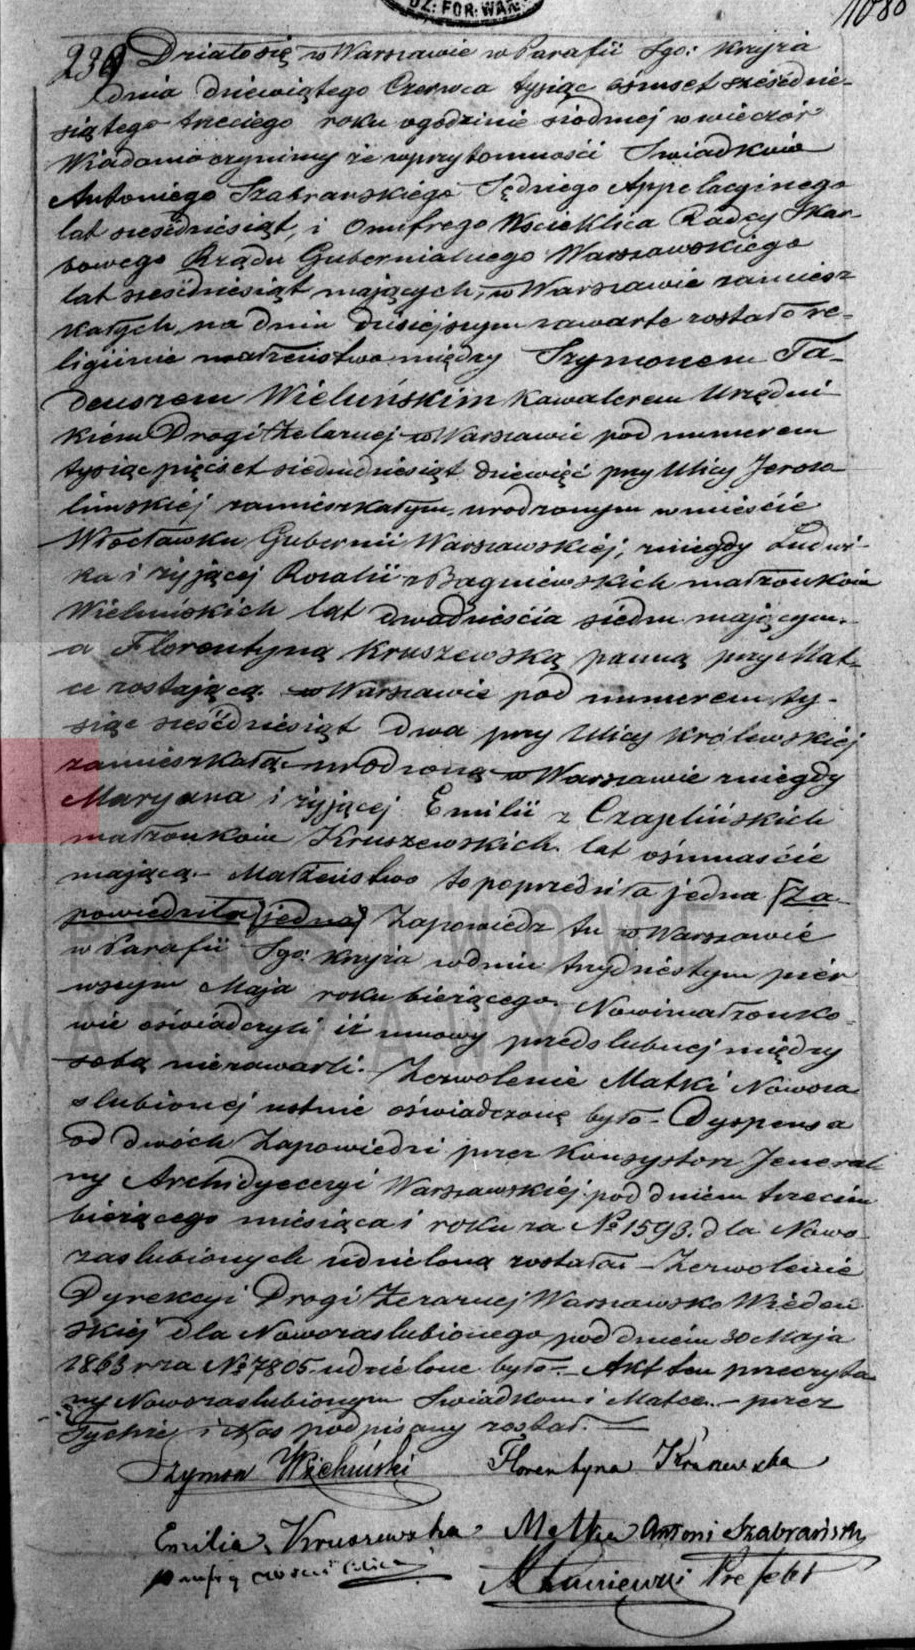 DZ. FOR. WAR.
1080
239 Działo się w Warszawie w Parafii Sgo: Krzyża
dnia dziewiątego Czerwca tysiąc ośmset sześćdzie-
siątego trzeciego roku o godzinie siódmej wieczór
Wiadomo czynimy że w przytomności Swiadków
Antoniego Szabrańskiego Sędziego Appelacyjnego
lat sześćdziesiąt, i Onufrego Wścieklica Radcy Skar-
bowego Rządu Gubernialnego Warszawskiego
lat sześćdziesiąt mających, w Warszawie zamiesz-
kałych, na dniu dzisiejszym zawarte zostało re-
ligijnie małżeństwo między Szymonem Ta-
deuszem Wieluńskim kawalerem Urzędni-
kiem Drogi Żelaznej w Warszawie pod numerem
tysiąc pięćset siedmdziesiąt dziewięć przy Ulicy Jerozo-
limskiej zamieszkałym, urodzonym w mieście
Włocławku Gubernii Warszawskiej, z niegdy Ludwi-
ka i żyjącej Rozalii z Bagniewskich małżonków
Wieluńskich lat dwadzieścia siedm mającym.
a Florentyną Kruszewską panną przy Mat-
ce zostającą w Warszawie pod numerem ty-
siąc sześćdziesiąt dwa przy Ulicy Królewskiej
zamieszkałą urodzoną w Warszawie z niegdy
Maryana i żyjącej Emilii z Czaplińskich
małżonków Kruszewskich lat ośmnaście
mającą. Małżeństwo to poprzedziła jedna [Za-
powiedziła] [jedna] Zapowiedź tu w Warszawie
w Parafii Sgo: Krzyża w dniu trzydziestym pier-
wszym Maja roku bieżącego. Nowi małżonko-
wie oświadczyli iż umowy przedślubnej między
sobą nie zawarli. Zezwolenie Matki Nowoza-
ślubionej ustnie oświadczone było. Dyspensa
od dwóch Zapowiedzi przez Konsystorz Jeneral-
ny Archidyecezyi Warszawskiej pod dniem trzecim
bieżącego miesiąca i roku za No 1593. dla Nowo-
zaślubionych udzieloną została. Zezwolenie
Dyrekcyi Drogi Żelaznej Warszawsko Wiedeń-
skiej dla Nowozaślubionego pod dniem 30 Maja
1863 r za No 7805 udzielone było. Akt ten przeczyta-
ny Nowozaślubionym Swiadkom i Matce. przez
Tychże i Nas podpisany został.
Szymon Wieluński Florentyna Kruszewska
Emilia Kruszewska Matka Antoni Szabrański
Prefekt